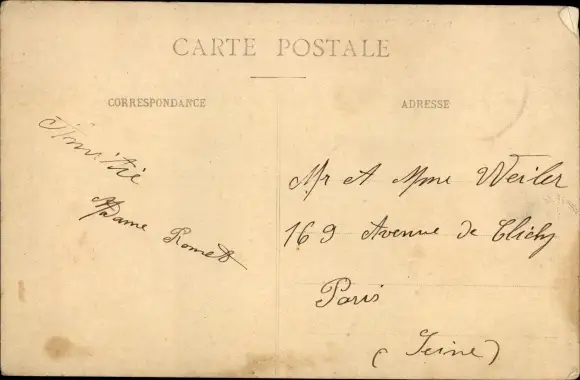 CARTE POSTALE
CORRESPONDANCE
ADRESSE
Amitié
Mdame Romet
Mr et Mme Weiler
169 Avenue de Clichy
Paris
(Seine)